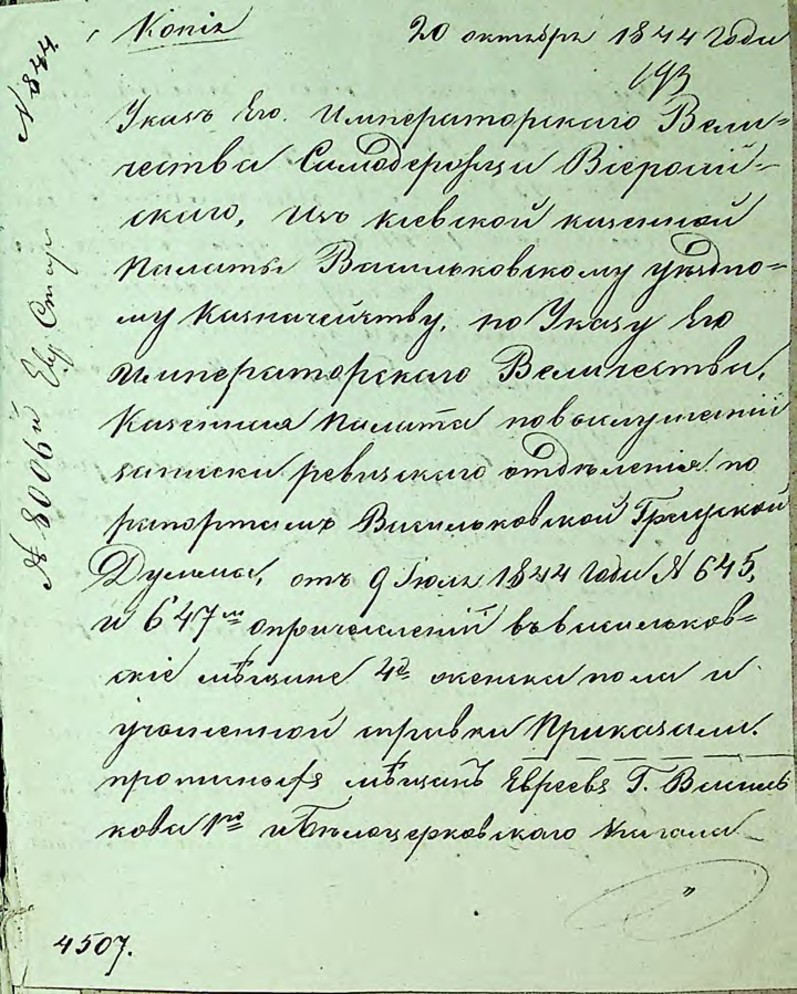 Копія
20 октября 1844 года
193
N 844
Указъ Его Императорскаго Вели=
чества Самодержца Всероссій-
скаго, изъ кіевской казенной
палаты Васильковскому уѣздно=
му Казначейству, по Указу Его
Императорскаго Величества,
Казенная Палата повыслушаніи
записки ревизскаго отдѣленія по
рапортамъ Васильковской Градской
Думы, отъ 9 Іюля 1844 года N 645,
и 647м опричисленій въвасильков=
скіе мѣщане 4х женска пола и
учиненной справки Приказали.
прописныхъ мѣщанъ Евреевъ Г. Василь
кова 1го иБѣлоцерковскаго Кагала
N 8006й Евр. Стар.
4507.